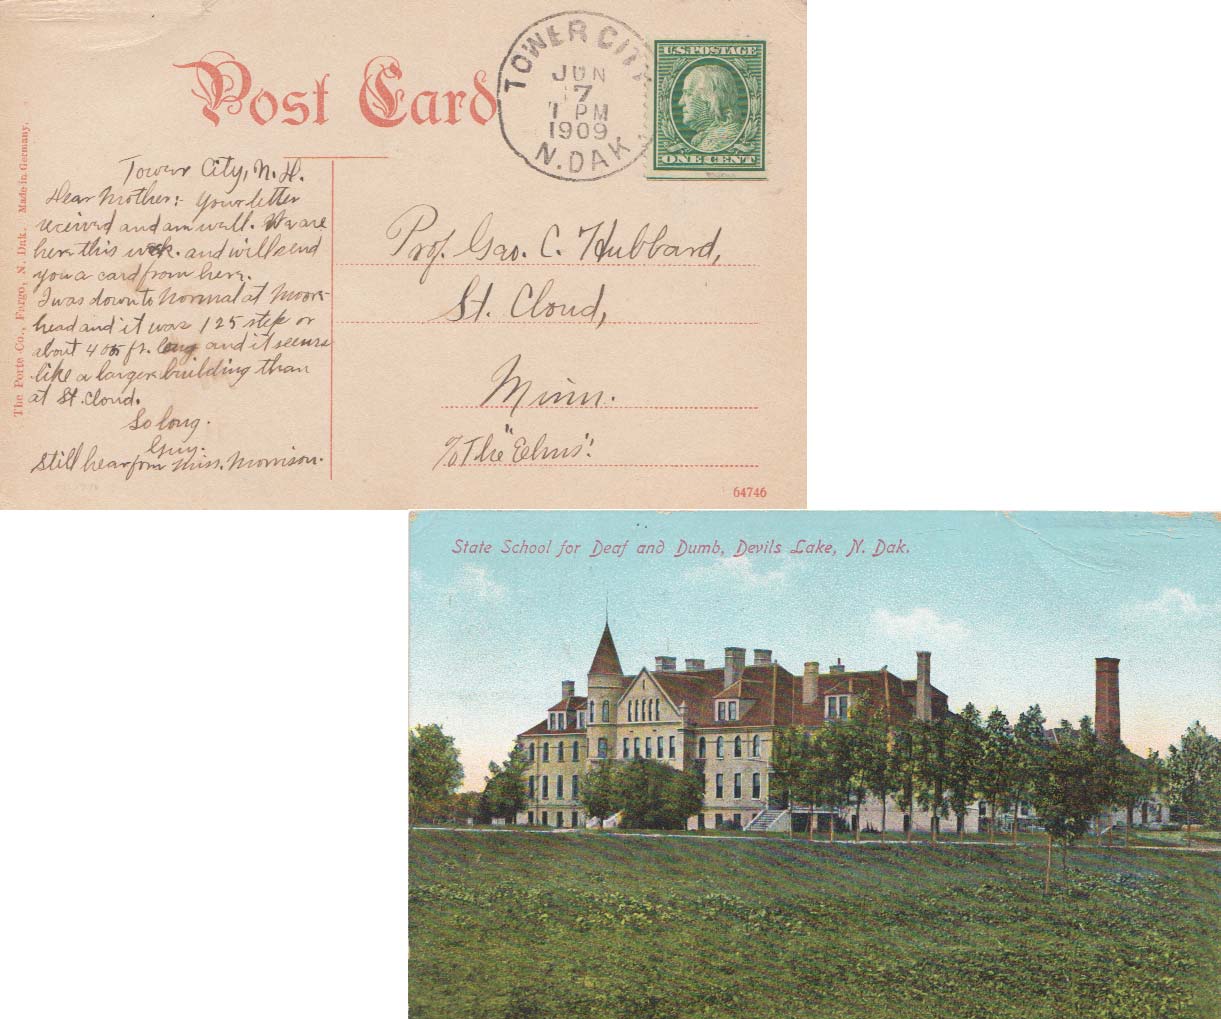 Post Card
TOWER CITY
JUN
7
7 PM
1909
N. DAK
U.S. POSTAGE
ONE CENT
The Porte Co., Fargo, N. Dak. Made in Germany.
Tower City, N. D.
Dear Mother:- Your letter
received and am well. We are
here this week. and will send
you a card from here.
I was down to Normal at Moor-
head and it was 125 step or
about 405 ft. long and it seems
like a larger building than
at St. Cloud.
So long.
Guy.
Still hear from Miss. Morrison.
Prof. Geo. C. Hubbard,
St. Cloud,
Minn.
c/o The "Elms".
64746
State School for Deaf and Dumb, Devils Lake, N. Dak.